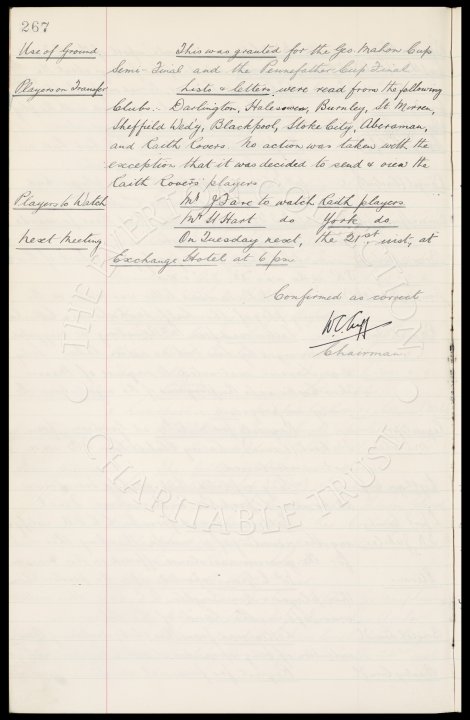 267
Use of Ground This was granted for the Geo. Mahon Cup
Semi-Final and the Pennefather Cup Final
Players on Transfer Lists & letters were read from the following
Clubs:- Darlington, Halesowen, Burnley, St Mirren,
Sheffield Wed'y, Blackpool, Stoke City, Aberaman,
and Raith Rovers. No action was taken with the
exception that it was decided to send & view the
Raith Rovers' players
Players to Watch Mr J Fare to watch Raith players
Mr H Hart do York do
Next Meeting On Tuesday next, the 21st, inst, at
Exchange Hotel at 6 pm
Confirmed as correct
W C Cuff
Chairman
THE EVERTON COLLECTION
CHARITABLE TRUST